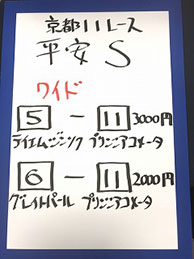 京都11レース
平安S
ワイド
5 - 11 3000円
テイエムジンソク プリンシアコメータ
6 - 11 2000円
グレイトパール プリンシアコメータ